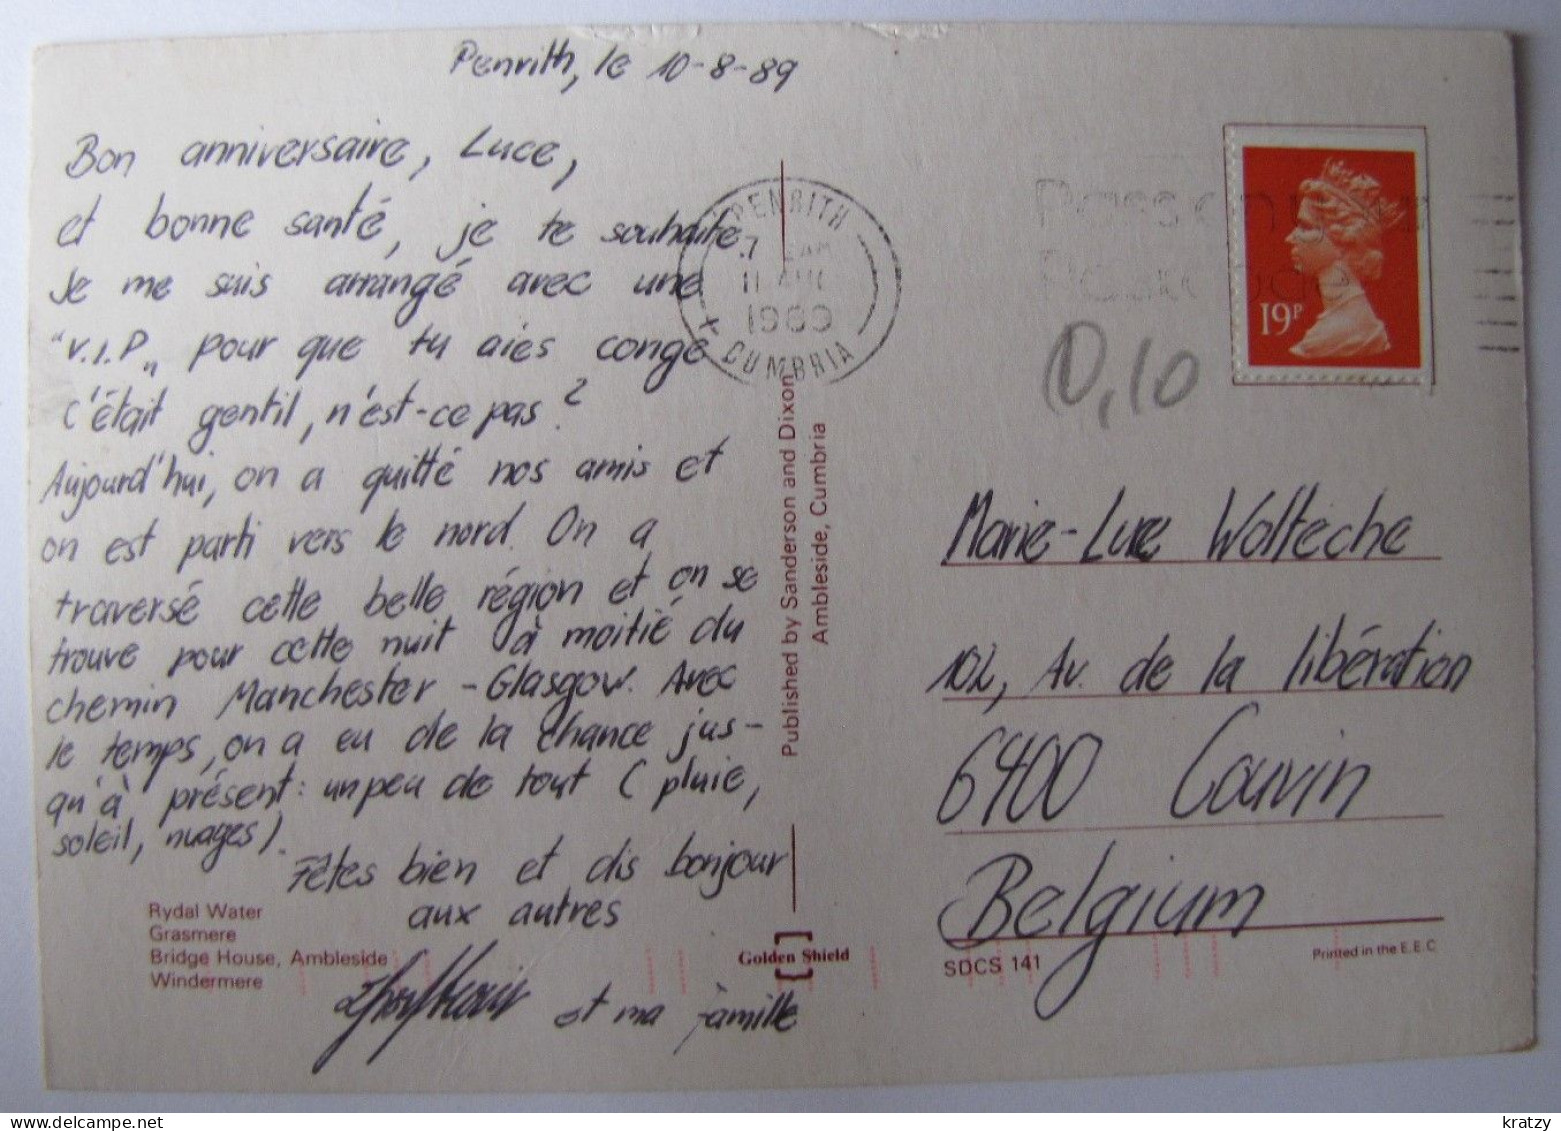 Penrith, le 10-8-89
Bon anniversaire, Luce,
et bonne santé, je te souhaite.
Je me suis arrangé avec une
"V.I.P" pour que tu aies congé
c'était gentil, n'est-ce pas?
Aujourd'hui, on a quitté nos amis et
on est parti vers le nord. On a
traversé cette belle région et on se
trouve pour cette nuit à moitié du
chemin Manchester - Glasgow. Avec
le temps, on a eu de la chance jus-
qu'à présent: un peu de tout (pluie,
soleil, nuages).
Fêtes bien et dis bonjour
aux autres
et ma famille
Rydal Water
Grasmere
Bridge House, Ambleside
Windermere
Published by Sanderson and Dixon
Ambleside, Cumbria
Golden Shield
PENRITH
11 AUG
1989
CUMBRIA
19P
0,10
Marie-Luce Wolteche
102, Av. de la libération
6400 Couvin
Belgium
SDCS 141
Printed in the E.E.C
kratzy